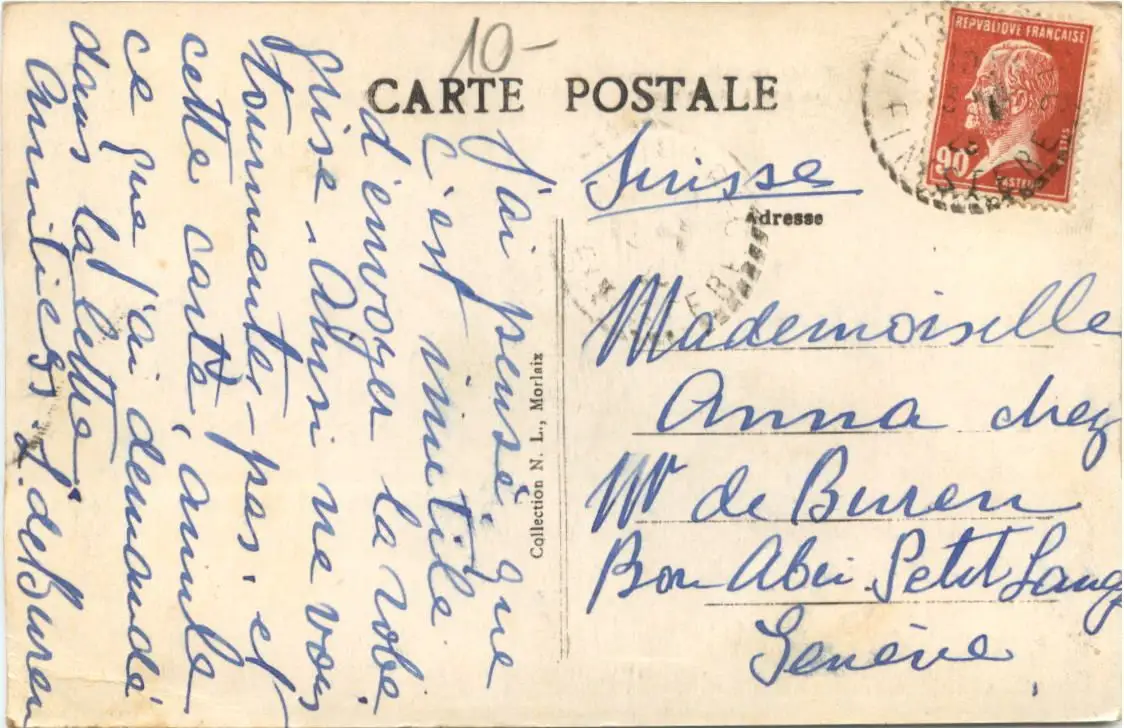 10-
CARTE POSTALE
REPVBLIQVE FRANÇAISE
90
Suisse
Adresse
Mademoiselle
Anna chez
Mr de Buren
Bon Abri Petit
Genève
Collection N. L., Morlaix
J'ai pensé que
c'est inutile
d'envoyer la robe
grise. Ainsi ne vous
tourmentez pas. et
cette carte, annule
ce que j'ai demandé
dans la lettre
Amitiés. L. de Buren
FINISTERE